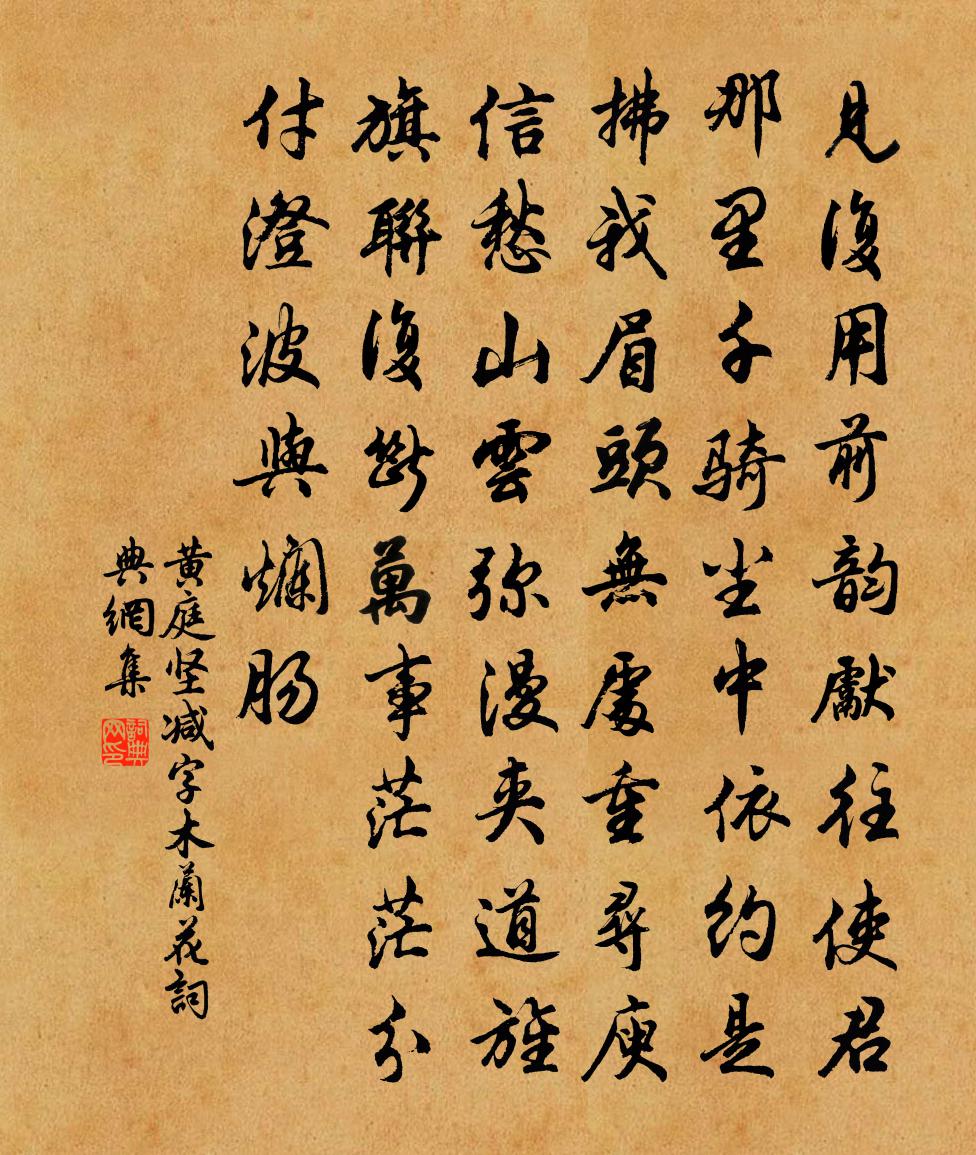 見復用前韵獻往使君
那里千骑尘中依約是
拂我眉頭無處重尋庾
信愁山雲弥漫夾道旌
旗聯復斷萬事茫茫分
付澄波與爛肠
黄庭坚减字木蘭花詞
典網集
詞典网印